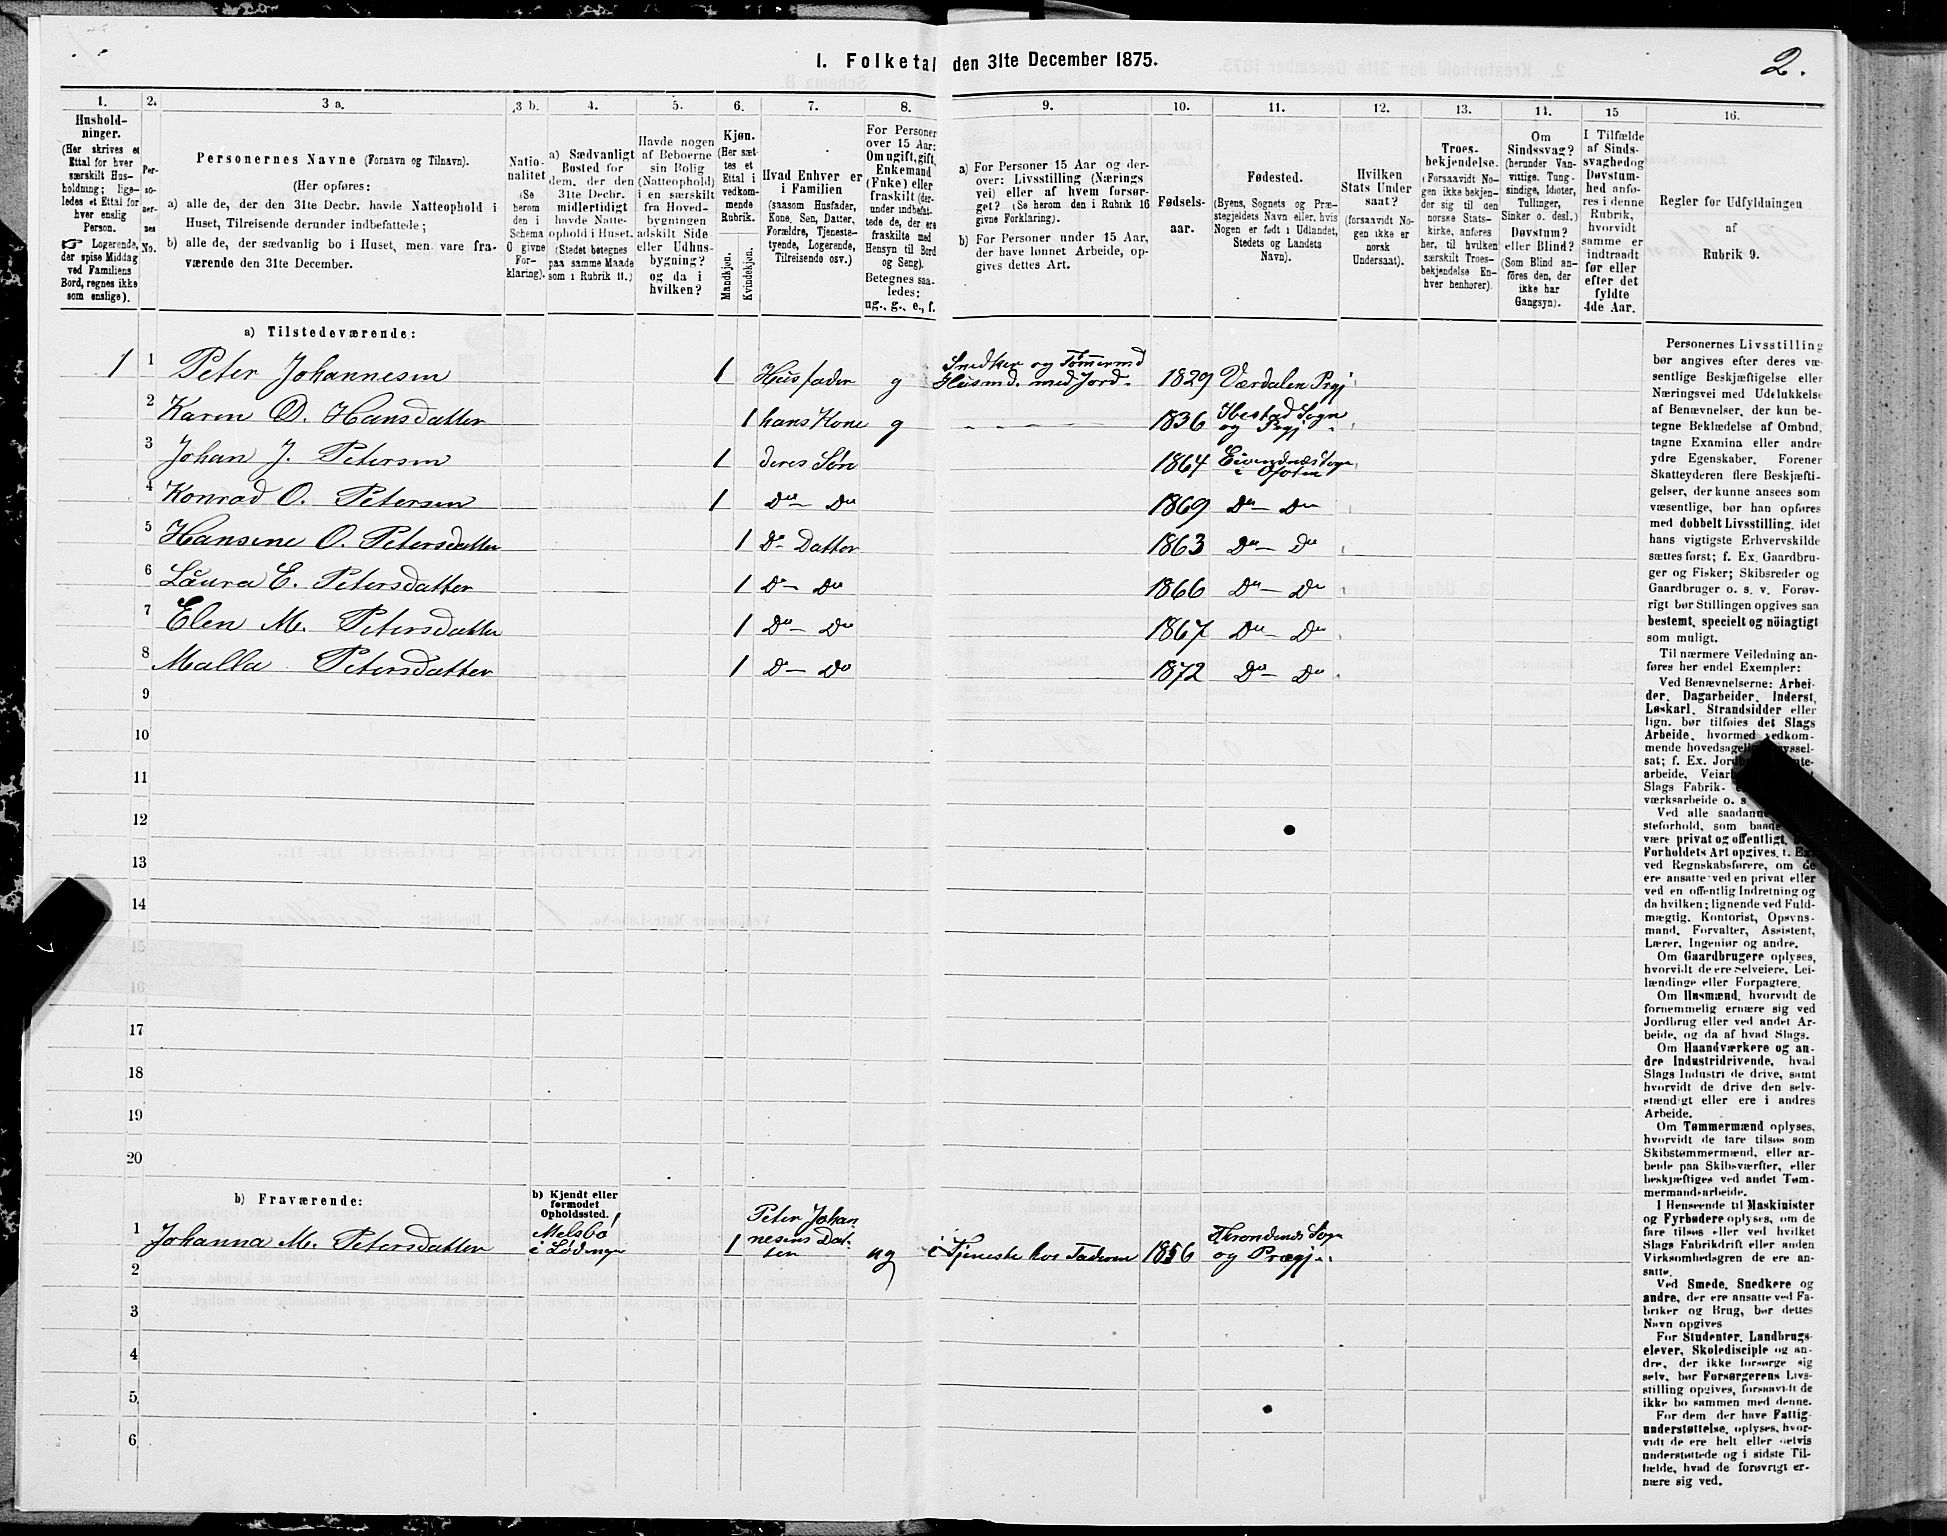 I. Folketal den 31te December 1875.
2.
1.
Hushold-
ninger.
(Her skrives et
Ettal for hver
særskilt Hus-
holdning; lige-
ledes et Ettal for
hver enslig
Person.
☞ Logerende,
der spise Middag
ved Familiens
Bord, regnes ikke
som enslige).
2.
Per-
so-
ner-
nes
No.
3 a.
Personernes Navne (Fornavn og Tilnavn).
(Her opføres:
a) alle de, der den 31te Decbr. havde Natteophold i
Huset, Tilreisende derunder indbefattede;
b) alle de, der sædvanlig bo i Huset, men vare fra-
værende den 31te December.
3 b.
Natio-
nalitet
(Se
herom
den i
Schema
O givne
For-
klaring).
4.
a) Sædvanligt
Bosted for
dem, der den
31te Decbr.
midlertidigt
havde Natte-
ophold i Huset.
(Stedet betegnes
paa samme Maade
som i Rubrik 11.)
5.
Havde nogen
af Beboerne
sin Bolig
(Natteophold)
i en særskilt
fra Hoved-
bygningen
adskilt Side
eller Udhus-
bygning?
og da i
hvilken?
6.
Kjøn.
(Her sæt-
tes et
Ettal i
vedkom-
mende
Rubrik.
Mandkjøn.
Kvindekjøn.
7.
Hvad Enhver er
i Familien
(saasom Husfader,
Kone, Søn, Datter,
Forældre, Tjeneste-
tyende, Logerende,
Tilreisende osv.)
8.
For Personer
over 15 Aar:
Om ugift, gift,
Enkemand
(Enke) eller
fraskilt (der-
under indbefat-
tede de, der ere
fraskilte med
Hensyn til Bord
og Seng).
Betegnes saa-
ledes:
ug., g., e., f.
9.
a) For Personer 15 Aar og der-
over: Livsstilling (Nærings
vei) eller af hvem forsør-
get? (Se herom den i Rubrik 16
givne Forklaring).
b) For Personer under 15 Aar,
der have lønnet Arbeide, op-
gives dettes Art.
10.
Fødsels-
aar.
11.
Fødested.
(Byens, Sognets og Præ-
stegjeldets Navn eller, hvis
Nogen er født i Udlandet,
Stedets og Landets
Navn).
12.
Hvilken
Stats Under
saat?
(forsaavidt No-
gen ikke er
norsk
Undersaat).
13.
Troes-
bekjendelse.
(Forsaavidt No-
gen ikke bekjen-
der sig til den
norske Stats-
kirke, anføres
her, til hvilken
særskilt Troes-
bekjendelse En-
hver henhører).
14.
Om
Sindssvag?
(herunder Van-
vittige, Tung-
sindige, Idioter,
Tullinger,
Sinker o. desl.)
Døvstum?
eller Blind?
(Som Blind an-
føres den, der
ikke har
Gangsyn).
15
I Tilfælde
af Sinds-
svaghed og
Døvstum-
hed anfø-
res i denne
Rubrik,
hvorvidt
samme er
indtraadt
før eller
efter det
fyldte
4de Aar.
16.
Regler for Udfyldningen
af
Rubrik 9.
a) Tilstedeværende:
1 1 Peter Johannesen 1 Husfader g Snedker og Tømmermd Husmd. med Jord. 1829 Værdalen Prgj
2 Karen D. Hansdatter 1 hans Kone g 1836 Ibestad Sogn og Prgj
3 Johan J. Petersen 1 deres Søn 1864 Eivendnæs Sogn i Ofoten
4 Konrad O. Petersen 1 Do — Do 1869 Do — Do
5 Hansine O. Petersdatter 1 Do Datter 1863 Do — Do
6 Laura E. Petersdatter 1 Do — Do 1866 Do — Do
7 Elen M. Petersdatter 1 Do — Do 1867 Do — Do
8 Malla Petersdatter 1 Do — Do 1872 Do — Do
9
10
11
12
13
14
15
16
17
18
19
20
b) Fraværende:
b) Kjendt eller
formodet
Opholdssted.
1 Johanna M. Petersdatter Melsbø i Lødingen 1 Peter Johannesens Datter ug i Tjeneste hos Faderen 1856 Throndenæs Sogn og Prægj.
2
3
4
5
6
Personernes Livsstilling
bør angives efter deres væ-
sentlige Beskjæftigelse eller
Næringsvei med Udelukkelse
af Benævnelser, der kun be-
tegne Beklædelse af Ombud,
tagne Examina eller andre
ydre Egenskaber. Forener
Skatteyderen flere Beskjæfti-
gelser, der kunne ansees som
væsentlige, bør han opføres
med dobbelt Livsstilling, idet
hans vigtigste Erhvervskilde
sættes først; f. Ex. Gaardbru-
ger og Fisker; Skibsreder og
Gaardbruger o. s. v. Forøv-
rigt bør Stillingen opgives saa
bestemt, specielt og nöiagtigt
som muligt.
Til nærmere Veiledning an-
føres her endel Exempler:
Ved Benævnelserne: Arbei-
der, Dagarbeider, Inderst,
Løskarl, Strandsidder eller
lign. bør tilføies det Slags
Arbeide, hvormed vedkom-
mende hovedsagelig sysssel-
sat; f. Ex.
arbeide,
Slags Fabrik-
værksarbeide o. s
Ved alle saadanne
steforhold, som baade
være privat og offentligt,
Forholdets Art opgives, f. Ex.
ved Regnskabsførere, om de
ere ansatte ved en privat eller
ved en offentlig Indretning og
da hvilken; lignende ved Fuld-
mægtig, Kontorist, Opsyns-
mand, Forvalter, Assistent,
Lærer, Ingeniør og andre.
Om Gaardbrugere oplyses,
hvorvidt de ere Selveiere, Lei-
lændinge eller Forpagtere.
Om Husmænd, hvorvidt de
fornemmelig ernære sig ved
Jordbrug eller ved andet Ar-
beide, og da af hvad Slags.
Om Haandværkere og an-
dre Industridrivende, hvad
Slags Industri de drive, samt
hvorvidt de drive den selv-
stændigt eller ere i andres
Arbeide.
Om Tømmermænd oplyses,
hvorvidt de fare tilsøs som
Skibstømmermænd, eller ar-
beide paa Skibsværfter, eller
beskjæftiges ved andet Tøm-
mermandsarbeide.
I Henseende til Maskinister
og Fyrbødere oplyses, om de
fare tilsøs eller ved hvilket
Slags Fabrikdrift eller anden
Virksomhedsgren de ere an-
satte.
Ved Smede, Snedkere og
andre, der ere ansatte ved Fa-
briker og Brug, bør dettes
Navn opgives
For Studenter, Landbrugs-
elever, Skoledisciple og an-
dre, der ikke forsørge sig
selv, bør Forsørgerens Livs-
stilling opgives, forsaavidt de
ikke bo sammen med denne.
For dem der have Fattig-
understøttelse, oplyses, hvor-
vidt de ere helt eller delvis
understøttede og i sidste Til-
fælde, hvad de forøvrigt er-
nære sig ved.